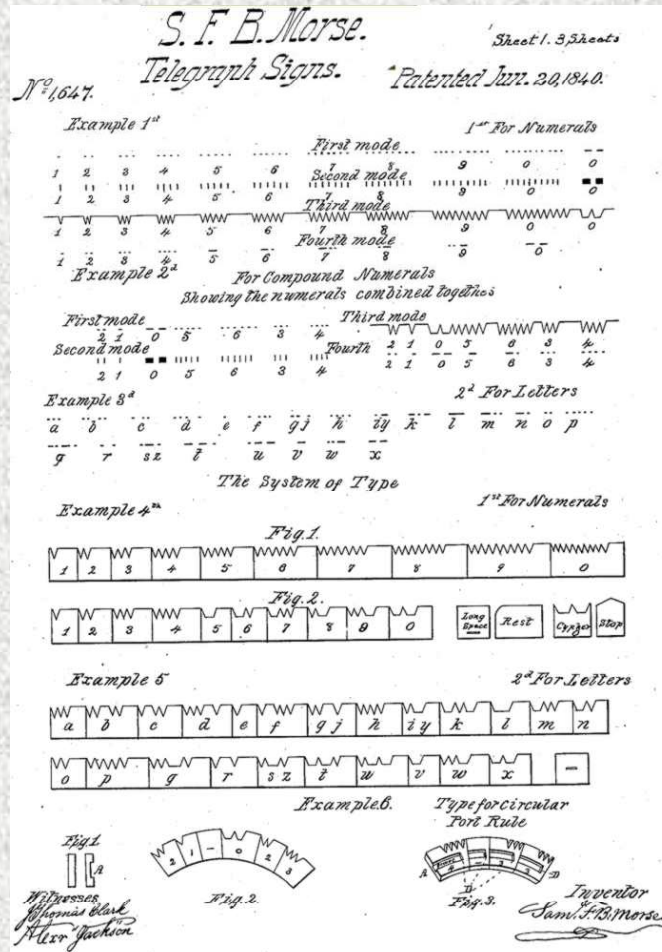 S. F. B. Morse.
Sheet 1. 3 Sheets
Telegraph Signs.
Nº 1,647.
Patented Jun. 20, 1840.
Example 1st
1st For Numerals
First mode
1 2 3 4 5 6 7 8 9 0 0
Second mode
1 2 3 4 5 6 7 8 9 0 0
Third mode
1 2 3 4 5 6 7 8 9 0 0
Fourth mode
1 2 3 4 5 6 7 8 9 0
Example 2d
For Compound Numerals
Showing the numerals combined together
First mode
2 1 0 5 6 3 4
Third mode
2 1 0 5 6 3 4
Second mode
2 1 0 5 6 3 4
Fourth
2 1 0 5 6 3 4
Example 3d
2d For Letters
a b c d e f gj h iy k l m n o p
q r sz t u v w x
The System of Type
Example 4th
1st For Numerals
Fig. 1.
1 2 3 4 5 6 7 8 9 0
Fig. 2.
1 2 3 4 5 6 7 8 9 0 Long Space Rest Cypher Stop
Example 5
2d For Letters
a b c d e f g j h i y k l m n
o p q r s z t u v w x –
Example 6.
Type for circular
Port Rule
Fig. 1
A
2 1 – 0 2 3
Fig. 2.
A D
D
Fig. 3.
Witnesses
Thomas Clark
Alexr Jackson
Inventor
Sam. F. B. Morse